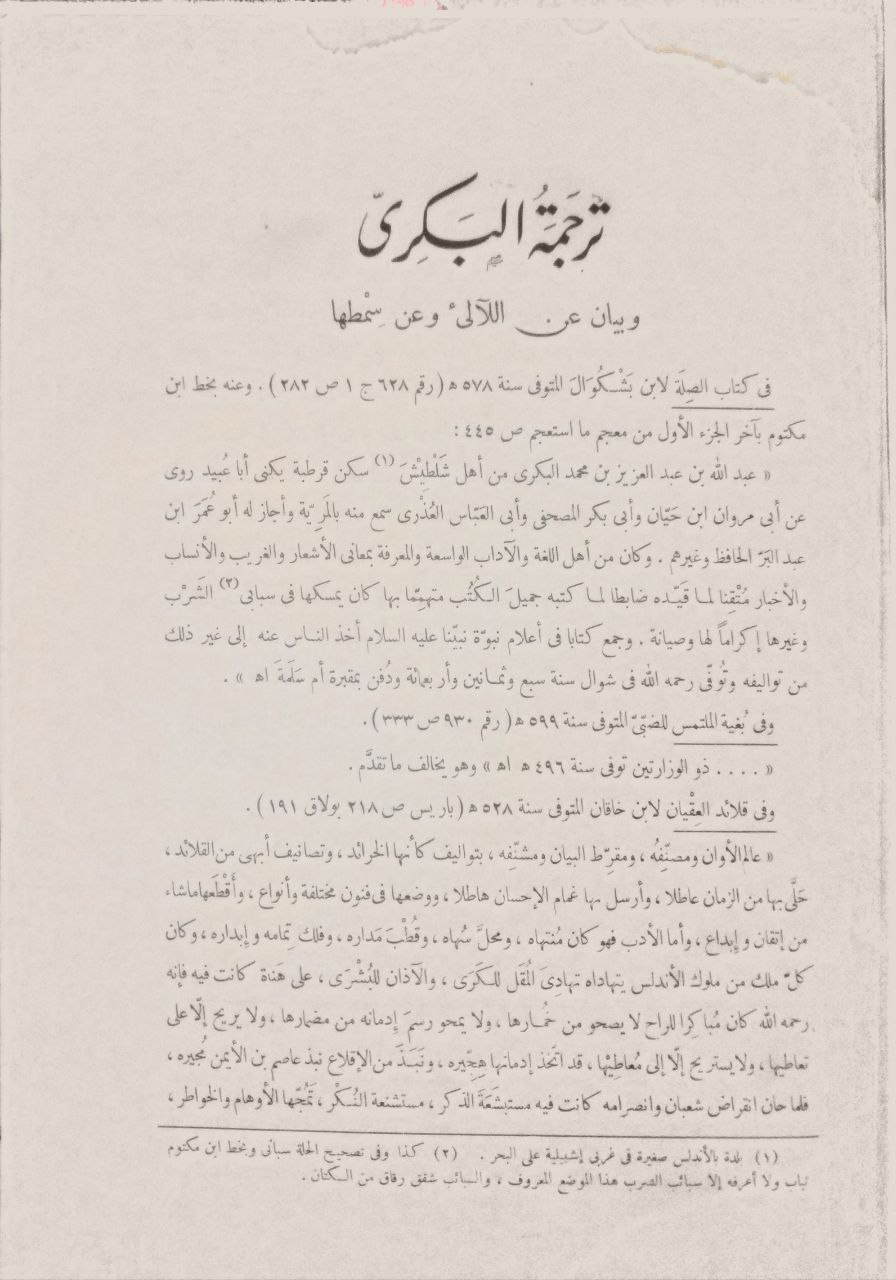 ترجَمَةُ البَكرِىّ
وبيان عن اللآلئ وعن سِمْطها
فى كتاب الصِلَة لابن بَشْكُوَالَ المتوفى سنة ٥٧٨ ﻫ ( رقم ٦٢٨ ج ١ ص ٢٨٢ ) . وعنه بخط ابن
مكتوم بآخر الجزء الأول من معجم ما استعجم ص ٤٤٥ :
« عبد الله بن عبد العزيز بن محمد البكرى من أهل شَلْطِيْشَ (١) سكن قرطبة يكنى أبا عُبيد روى
عن أبى مروان ابن حَيّان وأبى بكر المصحفى وأبى العَبّاس العُذْرى سمع منه بالمَرِيّة وأجاز له أبو عُمَرَ ابن
عبد البَرّ الحافظ وغيرهم . وكان من أهل اللغة والآداب الواسعة والمعرفة بمعانى الأشعار والغريب والأنساب
والأخبار مُتْقِنا لما قَيّده ضابطا لما كتبه جميلَ الكُتُب متهمّما بها كان يمسكها فى سبابى (٢) الشَرْب
وغيرها إكراماً لها وصيانة . وجمع كتابا فى أعلام نبوّة نبيّنا عليه السلام أخذ الناس عنه إلى غير ذلك
من تواليفه وتُوفّى رحمه الله فى شوال سنة سبع وثمانين وأربعمائة ودُفن بمقبرة أم سَلَمَةَ اﻫ » .
وفى بُغية الملتمس للضبّىّ المتوفى سنة ٥٩٩ ﻫ ( رقم ٩٣٠ ص ٣٣٣ ) .
« . . . . ذو الوزارتين توفى سنة ٤٩٦ ﻫ اﻫ » وهو يخالف ما تقدَّم .
وفى قلائد العِقْيان لابن خاقان المتوفى سنة ٥٢٨ ﻫ ( باريس ص ٢١٨ بولاق ١٩١ ) .
« عالم الأوان ومصنِّفُه ، ومقرِّط البيان ومشنِّفه ، بتواليف كأنها الخرائد ، وتصانيف أبهى من القلائد ،
حَلَّى بها من الزمان عاطلا ، وأرسل بها غمام الإحسان هاطلا ، ووضعها فى فنون مختلفة وأنواع ، وأَقْطَعها ماشاء
من إتقان وإبداع ، وأما الأدب فهو كان مُنتهاه ، ومحلَّ سُهاه ، وقُطْبَ مَداره ، وفلك تِمامه وإبداره ، وكان
كلّ ملك من ملوك الأندلس يتهاداه تهادِىَ المُقَل للكَرَى ، والآذان للبُشْرَى ، على هَناة كانت فيه فإنه
رحمه الله كان مُباكِرا للراح لا يصحو من خُمارها ، ولا يمحو رسمَ إدمانه من مضمارها ، ولا يريح إلّا على
تعاطيها ، ولا يستريح إلّا إلى مُعاطِيْها ، قد اتّخذ إدمانها هِجِّيره ، ونَبَذَ من الإقلاع نبذ عاصم بن الأيمن مُجيره ،
فلما حان انقراض شعبان وانصرامه كانت فيه مستبشَعَة الذكر ، مستشنعة النُكْر ، تَمُجّها الأوهام والخواطر ،
(١) بلدة بالأندلس صغيرة فى غربى إشبيلية على البحر . (٢) كذا وفى تصحيح الحلة سبانى وبخط ابن مكتوم
ثياب ولا أعرفه إلا سبائب الصرب هذا الموضع المعروف ، والسبائب شقق رقاق من الكتان .